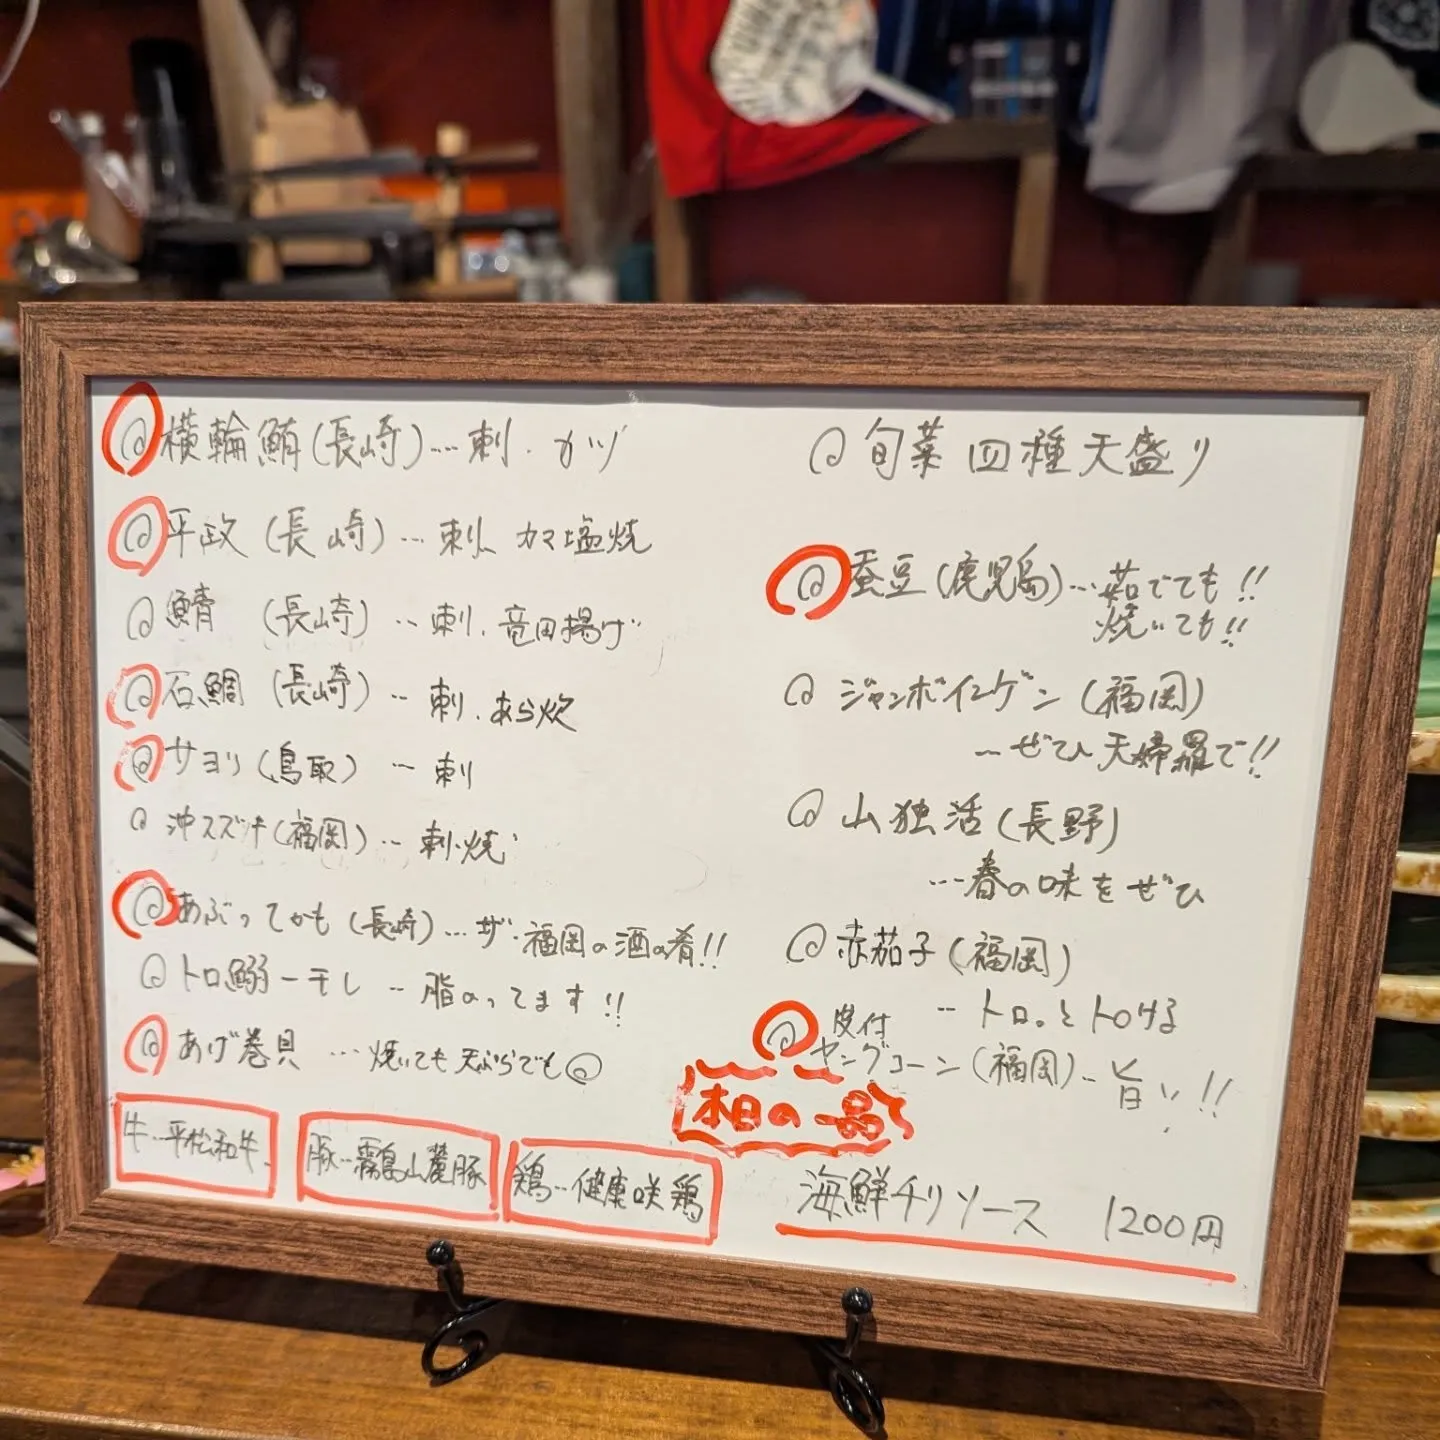 横輪鮪(長崎)…刺・カツ
平政(長崎)…刺、カマ塩焼
鯖 (長崎)…刺、竜田揚げ
石鯛(長崎)…刺、あら炊
サヨリ(鳥取)…刺
沖スズキ(福岡)…刺・焼
あぶってかも(長崎)…ザ・福岡の酒の肴!!
トロ鰯一干し…脂のってます!!
あげ巻貝…焼いても天ぷらでも◎
牛…平松和牛
豚…霧島山麓豚
鶏…健康咲鶏
旬菜四種天盛り
蚕豆(鹿児島)…茹でても!!
焼いても!!
ジャンボインゲン(福岡)
…ぜひ天婦羅で!!
山独活(長野)
…春の味をぜひ
赤茄子(福岡)
…トロっとトロける
皮付
ヤングコーン(福岡)…旨い!!
本日の一品
海鮮チリソース 1200円